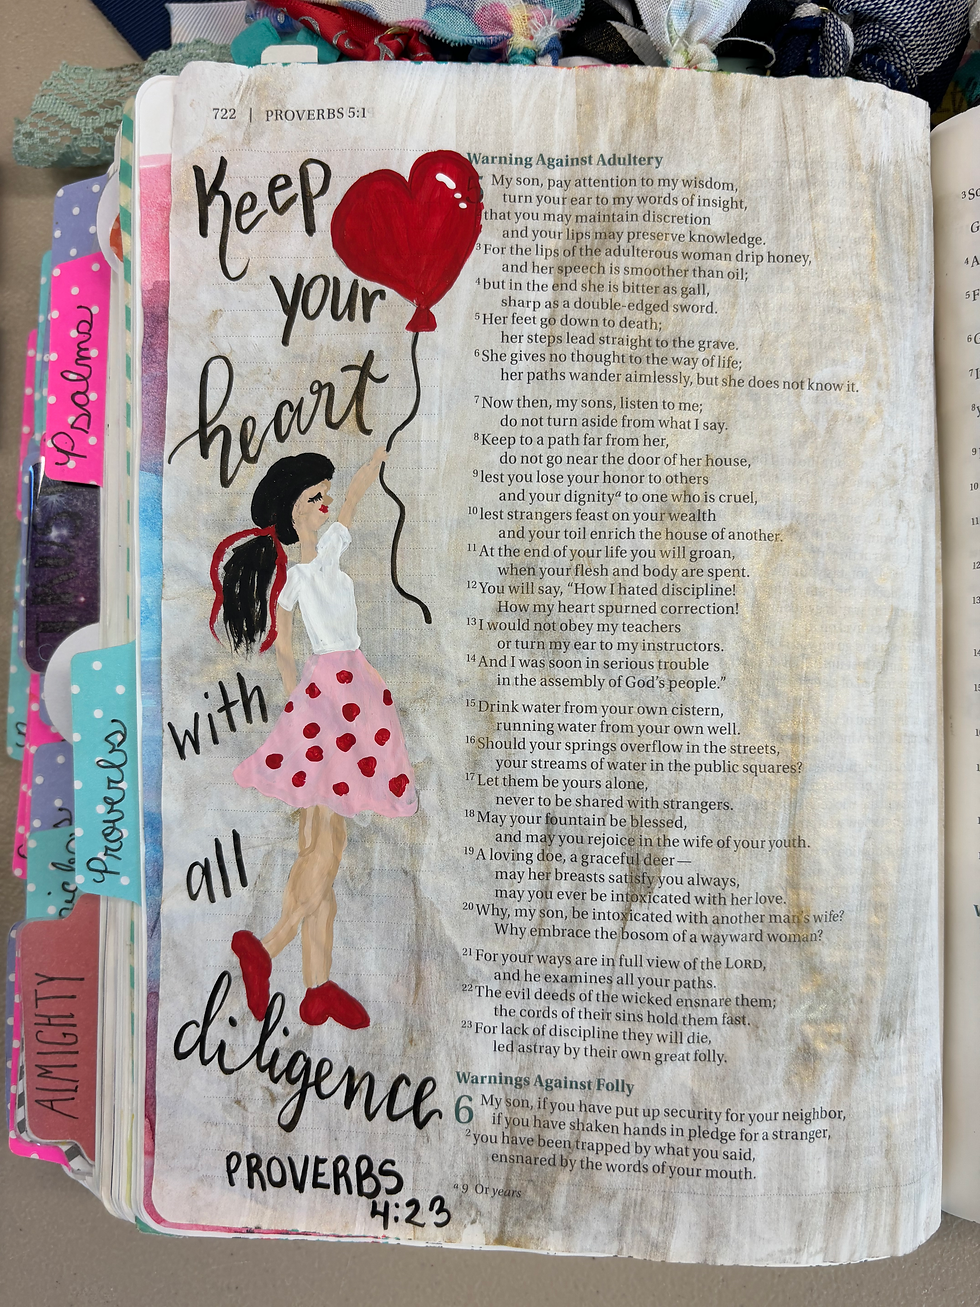 722 | PROVERBS 5:1
Keep
your
heart
with
all
diligence
PROVERBS
4:23
Warning Against Adultery
My son, pay attention to my wisdom,
turn your ear to my words of insight,
that you may maintain discretion
and your lips may preserve knowledge.
3 For the lips of the adulterous woman drip honey,
and her speech is smoother than oil;
4 but in the end she is bitter as gall,
sharp as a double-edged sword.
5 Her feet go down to death;
her steps lead straight to the grave.
6 She gives no thought to the way of life;
her paths wander aimlessly, but she does not know it.
7 Now then, my sons, listen to me;
do not turn aside from what I say.
8 Keep to a path far from her,
do not go near the door of her house,
9 lest you lose your honor to others
and your dignity a to one who is cruel,
10 lest strangers feast on your wealth
and your toil enrich the house of another.
11 At the end of your life you will groan,
when your flesh and body are spent.
12 You will say, “How I hated discipline!
How my heart spurned correction!
13 I would not obey my teachers
or turn my ear to my instructors.
14 And I was soon in serious trouble
in the assembly of God’s people.”
15 Drink water from your own cistern,
running water from your own well.
16 Should your springs overflow in the streets,
your streams of water in the public squares?
17 Let them be yours alone,
never to be shared with strangers.
18 May your fountain be blessed,
and may you rejoice in the wife of your youth.
19 A loving doe, a graceful deer—
may her breasts satisfy you always,
may you ever be intoxicated with her love.
20 Why, my son, be intoxicated with another man’s wife?
Why embrace the bosom of a wayward woman?
21 For your ways are in full view of the LORD,
and he examines all your paths.
22 The evil deeds of the wicked ensnare them;
the cords of their sins hold them fast.
23 For lack of discipline they will die,
led astray by their own great folly.
Warnings Against Folly
6 My son, if you have put up security for your neighbor,
if you have shaken hands in pledge for a stranger,
2 you have been trapped by what you said,
ensnared by the words of your mouth.
a 9 Or years
Psalms
Proverbs
ALMIGHTY